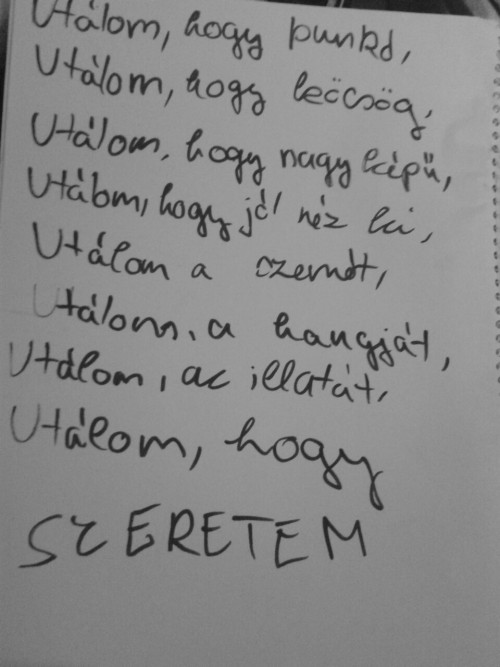 Utálom, hogy bunkó,
Utálom, hogy lecsög,
Utálom, hogy nagy képű,
Utálom, hogy jól néz ki,
Utálom a szemét,
Utálom, a hangját,
Utálom, az illatát,
Utálom, hogy
SZERETEM